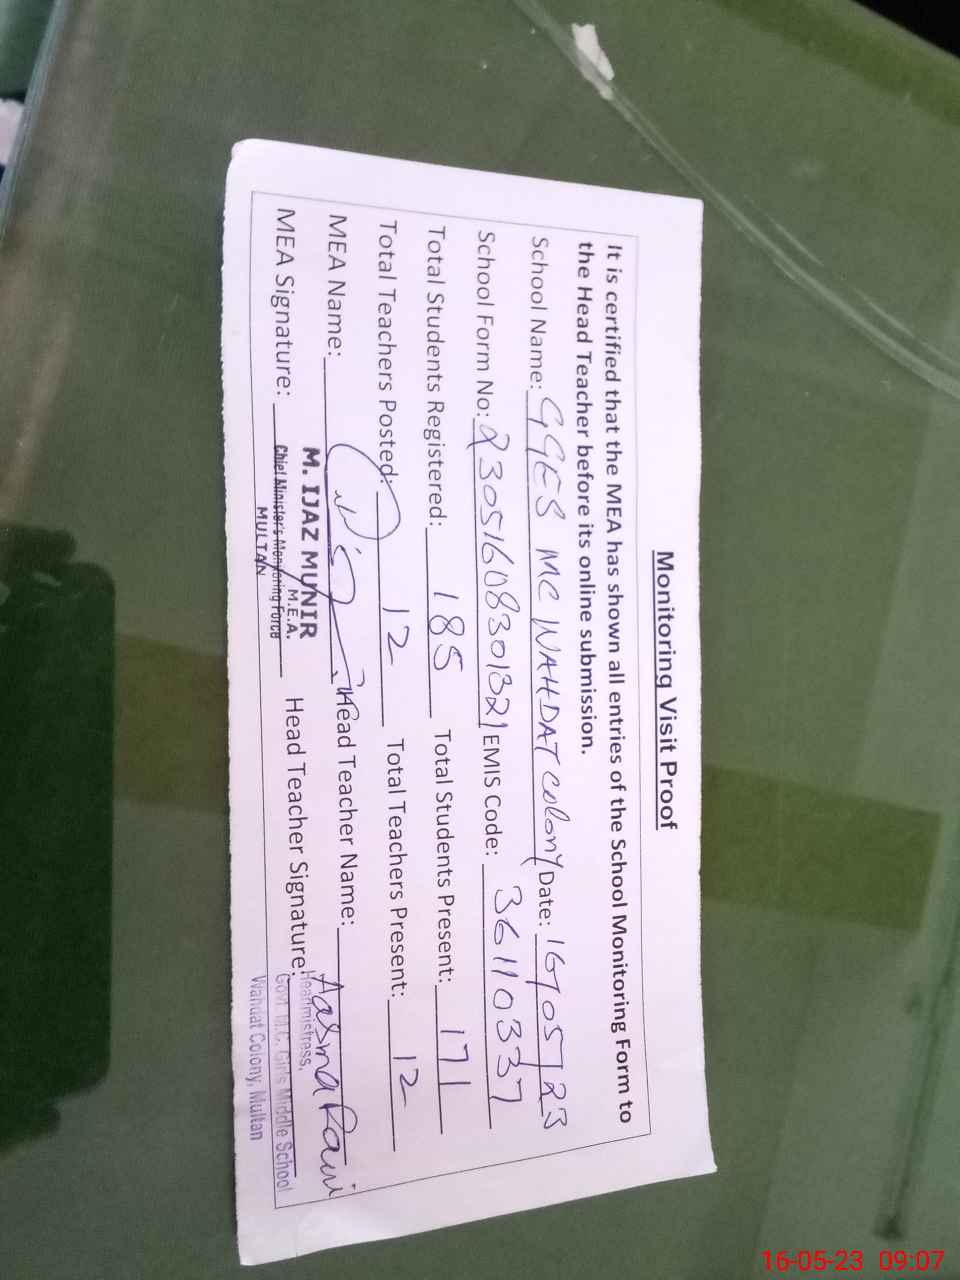 Monitoring Visit Proof
It is certified that the MEA has shown all entries of the School Monitoring Form to
the Head Teacher before its online submission.
School Name: GGES MC WAHDAT COLONY Date: 16/05/23
School Form No: 23051608301321 EMIS Code: 36110337
Total Students Registered: 185 Total Students Present: 171
Total Teachers Posted: 12 Total Teachers Present: 12
MEA Name: Head Teacher Name: Aasma
MEA Signature: Head Teacher Signature:
M. IJAZ MUNIR
M.E.A.
Chief Minister's Monitoring Force
MULTAN
Headmistress,
Govt. M.C. Girls Middle School
Wahdat Colony, Multan
16-05-23 09:07